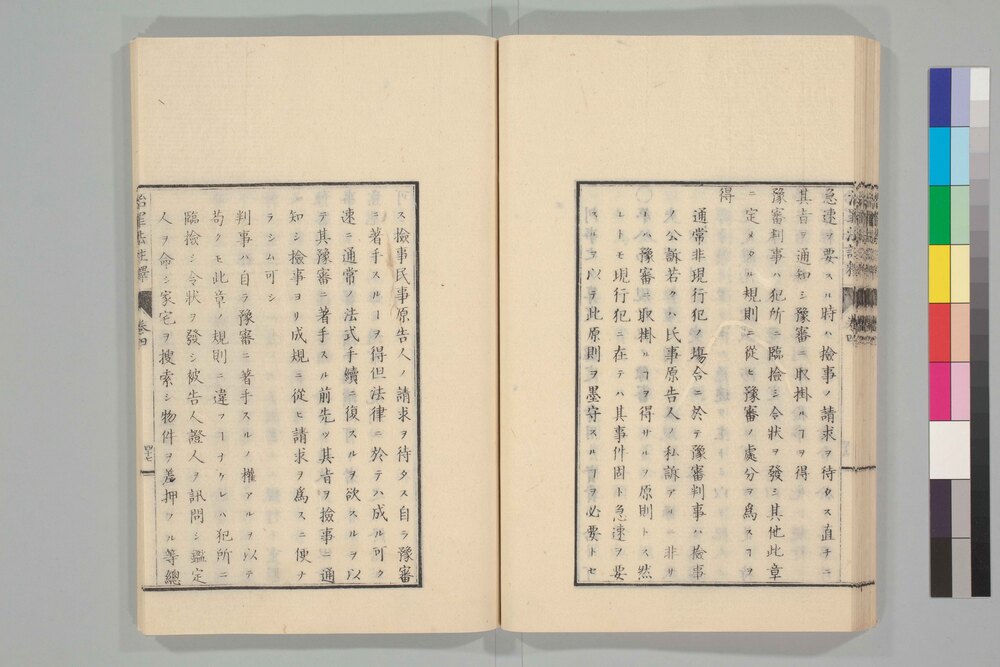 急速ヲ要スル時ハ撿事ノ請求ヲ待タス直チニ
其旨ヲ通知シ豫審ニ取掛ルヿヲ得
豫審判事ハ犯所ニ臨撿シ令狀ヲ發シ其他此章
ニ定メタル規則ニ從ヒ豫審ノ處分ヲ爲スヿヲ
得
通常非現行犯ノ塲合ニ於テ豫審判事ハ撿事
ノ公訴若クハ民事原告人ノ私訴アルニ非サ
レハ豫審ニ取掛ルヿヲ得サルヲ原則トス然
レトモ現行犯ニ在テハ其事件固ト急速ヲ要
スルヲ以テ此原則ヲ墨守スルヿヲ必要トセ
ス撿事民事原告人ノ請求ヲ待タス自ラ豫審
ニ著手スルヿヲ得但法律ニ於テハ成ル可ク
速ニ通常ノ法式手續ニ復スルヲ欲スルヲ以
テ其豫審ニ著手スル前先ツ其旨ヲ撿事ニ通
知シ撿事ヨリ成規ニ從ヒ請求ヲ爲スニ便ナ
ラシム可シ
判事ハ自ラ豫審ニ著手スルノ權アルヲ以テ
苟クモ此章ノ規則ニ違フヿナケレハ犯所ニ
臨撿シ令狀ヲ發シ被告人證人ヲ訊問シ鑑定
人ヲ命シ家宅ヲ搜索シ物件ヲ差押フル等總
治罪法註釋 卷四 四七